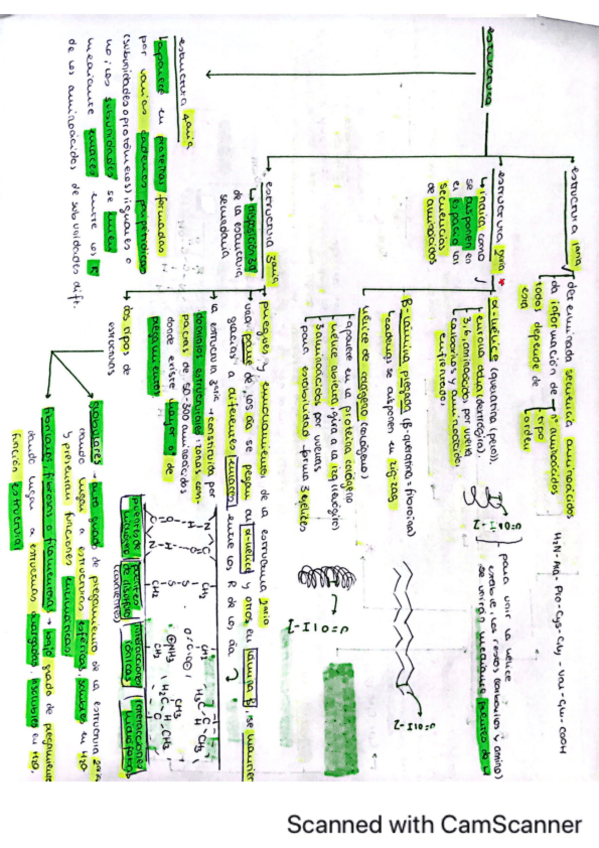 estructura
estructura 1aria
determinada secuencia aminoácidos
da información de
nº aminoácidos
tipo
orden
todos depende de
esta
H2N - Ala - Pro - Cys - Gly - Val - Glu - COOH
estructura 2aria
indica como
se disponen en
el espacio las
secuencias
de aminoácidos
α-hélice (queratina (pelo)).
3,6 aminoácidos por vuelta
para unir la hélice
se unirán mediante puentes de H
β-lámina plegada (β-queratina = fibroína)
cadenas se disponen en zig-zag
hélice de colágeno (colágeno)
aparece en la proteína colágeno
hélice abierta gira a la izq (levógiro)
3 aminoácidos por vueltas
para estabilizarlo forma 3 hélices
estructura 3aria
disposición 3D
de la estructura
secundaria
pliegues y enrollamientos de la estructura 2aria
una parte de los aa se pegan en α-hélice y otros en lámina β, se mantienen
gracias a diferentes enlaces entre los R de los aa
la estructura 3aria → construida por
dominios estructurales: zonas com-
pactas de 50-300 aminoácidos
donde existe mayor nº de
plegamientos
puentes de hidrógeno
puentes de disulfuro (covalentes)
interacciones iónicas
interacciones hidrófobas
dos tipos de
estructuras
globulares → alto grado de plegamiento de la estructura 2aria
dando lugar a estructuras esféricas, solubles en H2O
y presentan funciones enzimáticas
fibrilares, fibrosas o filamentosas → bajo grado de plegamiento
dando lugar a estructuras alargadas, insolubles en H2O.
función estructural
estructura 4aria
aparece en proteínas formadas
por varias cadenas polipeptídicas
(subunidades o protómeros) iguales o
no; las subunidades se unen
mediante enlaces entre los R
de los aminoácidos de subunidades dif.
Scanned with CamScanner